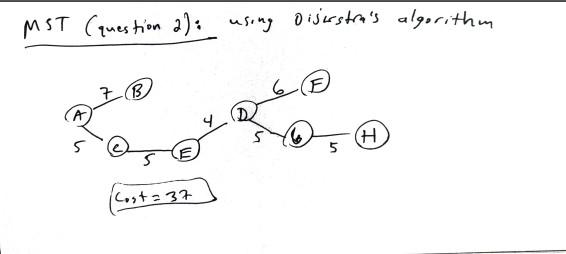 MST (question 2): using Dijkstra's algorithm
7 B 6 F
A 4 D
5 C 5 E 5 G 5 H
Cost = 37